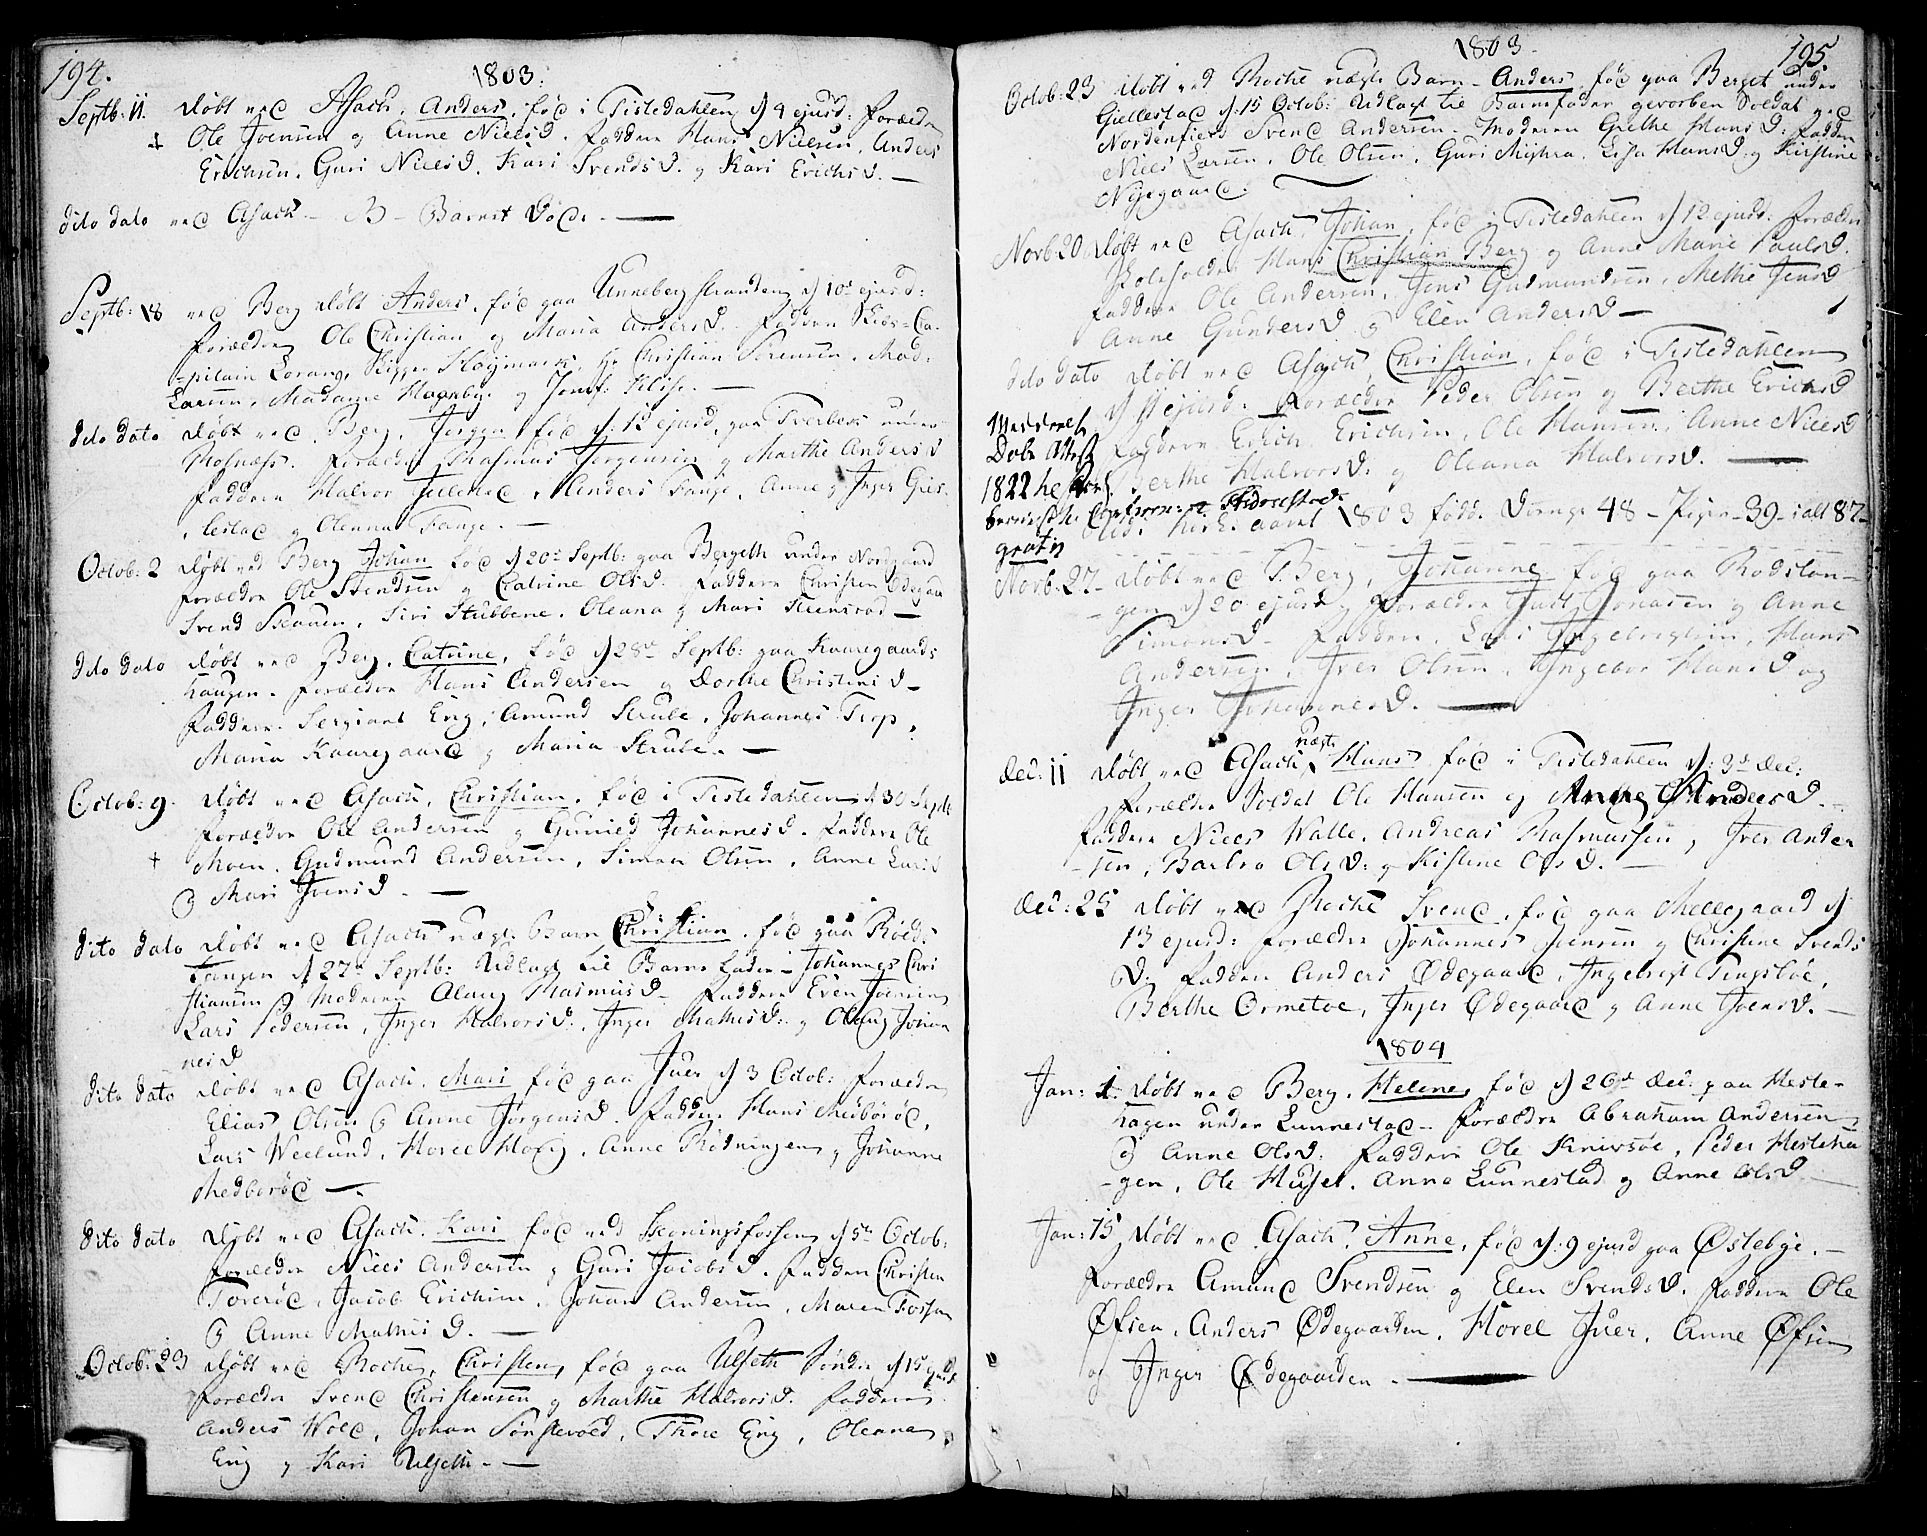 194.
1803.
Septb: 11. døbt ved Asach, Anders, fød i Tistedahlen d 4 ejusd: forældre
Ole Joensen og Anne Nielsd. faddere Hans Nielsen, Anders
Erichsen. Guri Nielsd. Kari Svendsd. og Kari Erichsd. —
dito dato ved Asach — B — Barnet Død. —
Septb: 18 ved Berg døbt Anders, fød paa Unneberg stranden d 10de ejusd:
forældre Ole Christian og Maria Andersd. faddere Skibs-Ca-
-pitain Lorang, Skipper Høymark, Hr Christian Sørensen, Mad:
Larsen, Madame Hognbye og Jomf: Klise. —
dito dato døbt ved Berg, Jørgen fød d. 12 ejusd, paa Tverbek under
Rosnæss. forældre Rasmus Jørgensen og Marthe Andersd
faddere Halvor Jellestad, Anders Fange, Anne og Inger Giel-
lestad og Oleana Fange. —
Octob: 2 døbt ved Berg Johan fød d 20de Septb: paa Bergeth under Norgaard
forældre Ole Svendsen og Catrine Olsd. faddere Christen Ødegaa
Svend Skauen, Siri Stubbene. Oleana og Mari Steensrød —
dito dato døbt ved Berg, Catrine, fød d 28de Septb: paa Kaaregaards
haugen. forældre Hans Andersen og Dorthe Christensd —
faddere. Sergiant Eng, Amund Strube, Johannes Torp,
Maria Kaaregaard og Maria Strube. —
Octob: 9. døbt ved Asach, Christian, fød i Tistedahlen d 30 Septb
forældre Ole Andersen og Gunild Johannesd. faddere Ole
Moen. Gudmund Andersen, Simon Olsen, Anne Larsd
og Mari Joensd. —
dito dato døbt ved Asach uægt. Barn Christian, fød paa Røds-
tangen d 27de Septb: Udlagt til Barne fader — Johannes Chri
stiansen Moderen Olaug Rasmusd — faddere Even Joensen
Lars Pedersen, Inger Halvorsd:, Inger Mathisd: og Olaug Johan
nesd
dito dato døbt ved Asach. Mari fød paa Juer d 3 Octob: forældre
Elias Olsen og Anne Jørgensd. faddere Hans Medbørød,
Lars Veelund, Horel Hofg. Anne Rødningen og Johanne
Medbørød —.
dito dato døbt ved Asach. Kari fød ved Skonningsfossen d 5te Octob:
forældre Niels Andersen og Guri Jacobsd. faddere Christen
Torerød, Jacob Erichsen. Johan Andersen, Maren Fossen
og Anne Mathisd. —
Octob: 23 døbt ved Rocke, Christen, fød paa Ulseth Søndre d 15 ejusd:
forældre Svend Christensen og Marthe Halvorsd. faddere
Anders Wold, Johan Sønstevold, Thore Eng, Oleana
Eng og Kari Ulseth. —
1803.
195.
Octob: 23 døbt ved Rocke uægte Barn — Anders fød paa Berget under
Giellestad d. 15 Octob: Udlagt til Barnefader gevorben Soldat ved
Nordenfields Svend Andersen. Moderen Grethe Hansd: faddere
Niels Larsen. Ole Olsen, Guri Myhra. Lisa Hansd. og Kirstine
Nyegaard. —
Novb: 20. døbt ved Asach, Johan, fød i Tistedahlen d 12 ejusd: forældre
Hans Christian Berg og Anne Marie Paulsd.
faddere Ole Andersen, Jens Gudmundsen, Methe Jensd
Anne Gundersd og Elen Andersd —
dito dato døbt ved Asach Christian, fød i Tistedahlen
d 11 ejusd. forældre Peder Olsen og Berthe Erichsd
faddere Erich Erichsen, Ole Hansen, Anne Nielsd
Berthe Halvorsd. og Oleana Halvorsd. —
Meddeelt
Dobe Attest
1822
gratis
aaret 1803 fødde Drenge 48 — Piger — 39 — ialt 87 —
Novb: 27 — døbt ved Berg, Johanne fød paa Rødstan-
-gen d 20 ejusd. forældre Just Jonasen og Anne
Simonsd — faddere, Lars Ingebrigtsen, Hans
Andersen, Iver Olsen, Ingebor Hansd og
Inger Johannesd. —
Dec: 11 døbt ved Asach uægte Hans fød i Tistedahlen d: 3de Dec:
forældre Soldat Ole Hansen og Anne Andersd. —
faddere Niels Walle. Andreas Rasmussen, Iver Ander
-sen, Barbro Olsd: og Kistine Olsd. —
Dec: 25 døbt ved Rocke Svend, fød paa Mellegaard d
13 ejusd: forældre Johannes Jensen og Christine Svends
d. faddere Anders Ødegaard, Ingebrigt Tingsløe,
Berthe Ormetoe, Inger Ødegaard og Anne Joensd. —
1804
Jan: 1. døbt ved Berg. Helene, fød d 26de Dec: paa Heste-
hagen under Lunnestad — forældre Abraham Andersen
og Anne Olsd: faddere Ole Knivsøe, Peder Hesteha
-gen, Ole Huset. Anne Lunnestad og Anne Olsd. —
Jan: 15 døbt ved Asach, Anne, fød d. 9 ejusd paa Østebye. —
forældre Amund Svendsen og Elen Svendsd. faddere Ole
Øfsen, Anders Ødegaarden. Horel Juer, Anne Øfsen
og Inger Ødegaarden. —